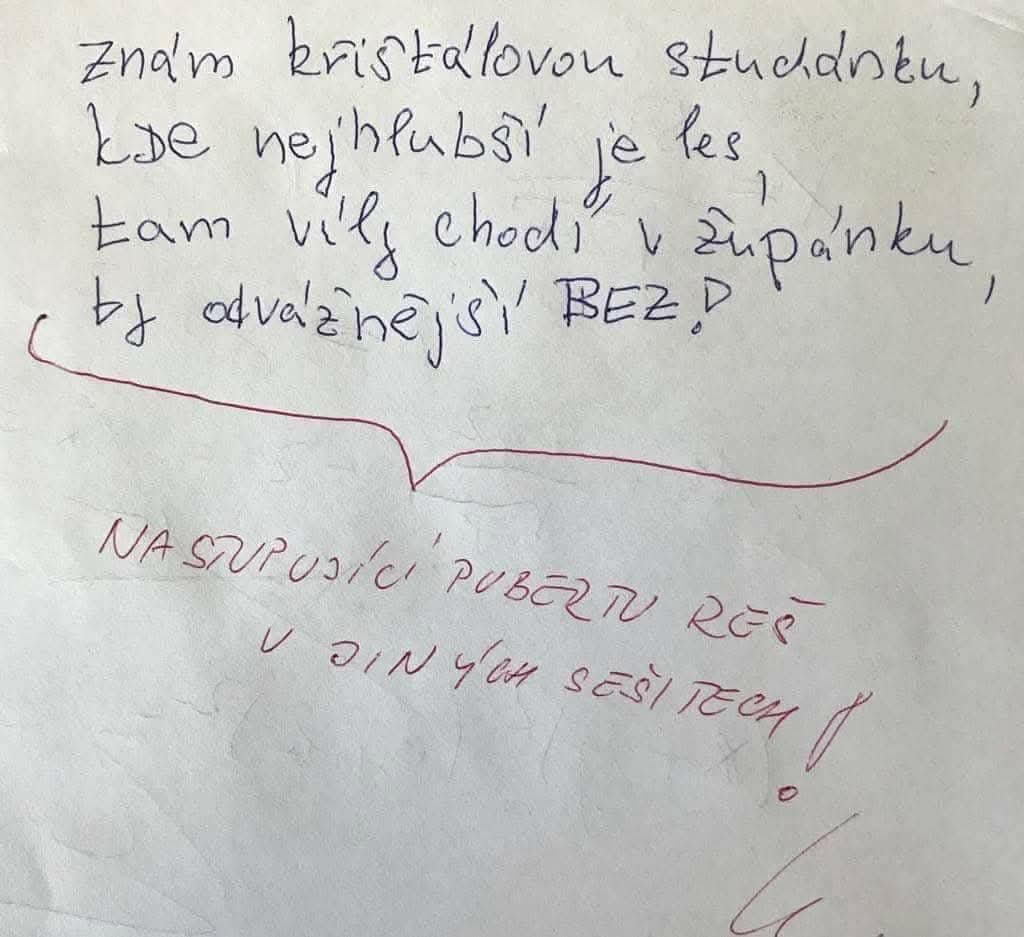 znám křišťálovou studánku,
kde nejhlubší je les,
tam víly chodí v župánku,
ty odvážnější BEZ!
NASTUPUJÍCÍ PUBERTU ŘEŠ
V JINÝCH SEŠITECH!